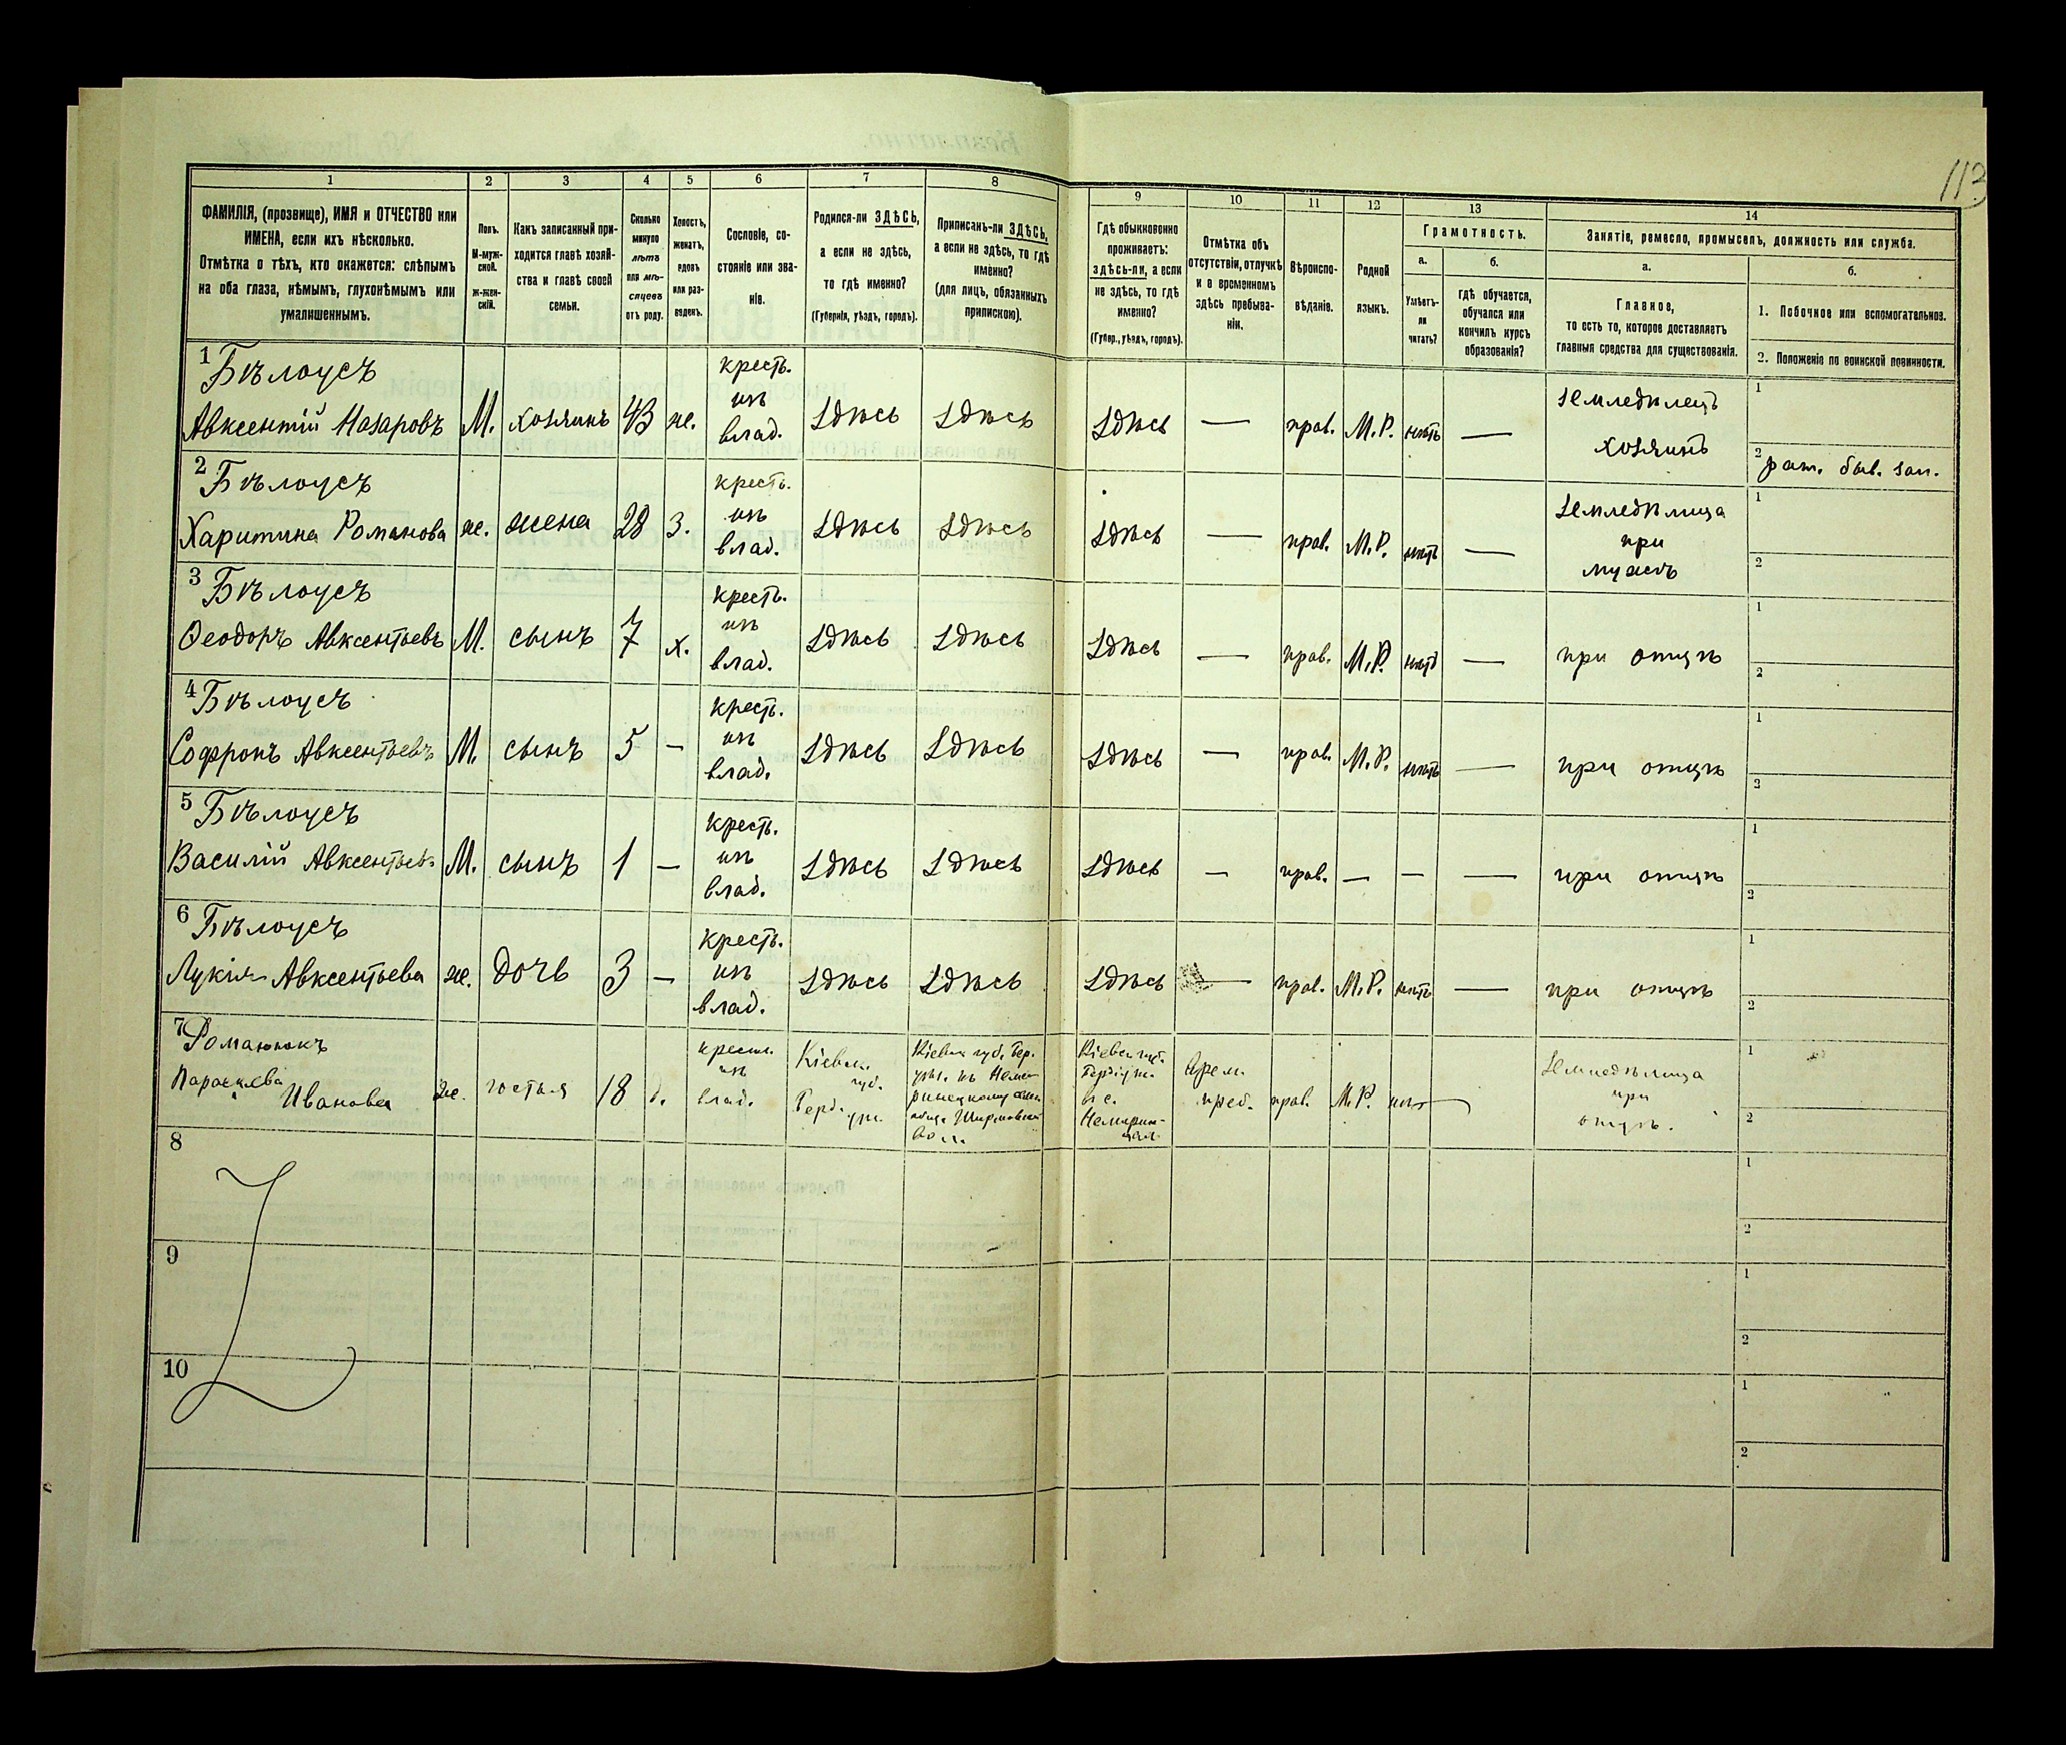 113
1 2 3 4 5 6 7 8 9 10 11 12 13 14
ФАМИЛІЯ, (прозвище), ИМЯ и ОТЧЕСТВО или ИМЕНА, если ихъ нѣсколько.
Отмѣтка о тѣхъ, кто окажется: слѣпымъ на оба глаза, нѣмымъ, глухонѣмымъ или умалишеннымъ.
Полъ. М-муж-ской. Ж-жен-скій.
Какъ записанный при-ходится главѣ хозяй-ства и главѣ своей семьи.
Сколько минуло лѣтъ или мѣ-сяцевъ отъ роду.
Холостъ, женатъ, вдовъ или раз-веденъ.
Сословіе, со-стояніе или зва-ніе.
Родился-ли ЗДѢСЬ, а если не здѣсь, то гдѣ именно? (Губернія, уѣздъ, городъ).
Приписанъ-ли ЗДѢСЬ, а если не здѣсь, то гдѣ именно? (для лицъ, обязанныхъ припискою).
Гдѣ обыкновенно проживаетъ: здѣсь-ли, а если не здѣсь, то гдѣ именно? (Губер., уѣздъ, городъ).
Отмѣтка объ отсутствіи, отлучкѣ и о временномъ здѣсь пребыва-ніи.
Вѣроиспо-вѣданіе.
Родной языкъ.
Грамотность.
а. Умѣетъ-ли читать?
б. гдѣ обучается, обучался или кончилъ курсъ образованія?
Занятіе, ремесло, промыселъ, должность или служба.
а. Главное, то есть то, которое доставляетъ главныя средства для существованія.
б.
1. Побочное или вспомогательное.
2. Положеніе по воинской повинности.
1 Бѣлоусъ
Авксентій Назаровъ М. хозяинъ 43 ж. кресть. изъ влад. здѣсь здѣсь здѣсь — прав. М.Р. нѣтъ — земледѣлецъ хозяинъ 1
2 рат. быв. зап.
2 Бѣлоусъ
Харитина Романова ж. жена 28 з. кресть. изъ влад. здѣсь здѣсь здѣсь — прав. М.Р. нѣтъ — земледѣлица при мужѣ 1
2
3 Бѣлоусъ
Ѳеодоръ Авксентьевъ М. сынъ 7 х. кресть. изъ влад. здѣсь здѣсь здѣсь — прав. М.Р. нѣтъ — при отцѣ 1
2
4 Бѣлоусъ
Софронъ Авксентьевъ М. сынъ 5 — кресть. изъ влад. здѣсь здѣсь здѣсь — прав. М.Р. нѣтъ — при отцѣ 1
2
5 Бѣлоусъ
Василій Авксентьевъ М. сынъ 1 — кресть. изъ влад. здѣсь здѣсь здѣсь — прав. — — — при отцѣ 1
2
6 Бѣлоусъ
Лукія Авксентьева ж. дочь 3 — кресть. изъ влад. здѣсь здѣсь здѣсь — прав. М.Р. нѣтъ — при отцѣ 1
2
7 Романюкъ
Параскева Иванова ж. гостья 18 д. крест. изъ влад. Кіевск. губ. Берд. уѣз. Кіевск. губ. Бер. уѣз. къ вол. Кіевск. губ. въ с. Врем. преб. прав. М.Р. нѣт — земледѣлица при отцѣ. 1
2
8
1
2
9
1
2
10
1
2